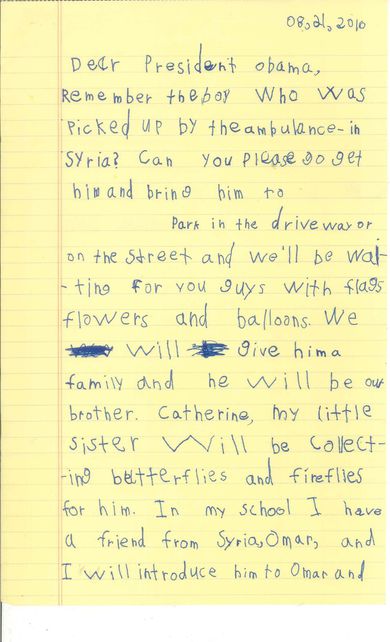 08,21,2010
Dear President obama,
Remember theboy Who was
Picked up by theambulance-in
Syria? Can you Please go get
himand bring him to
Park in the driveway or
on the street and we'll be wai-
-ting for you guys with flags
flowers and balloons. We
will give hima
family and he will be our
brother. Catherine, my little
sister Will be Collect-
-ing butterflies and fireflies
for him. In my school I have
a friend from Syria, Omar, and
I will introduce him to Omar and